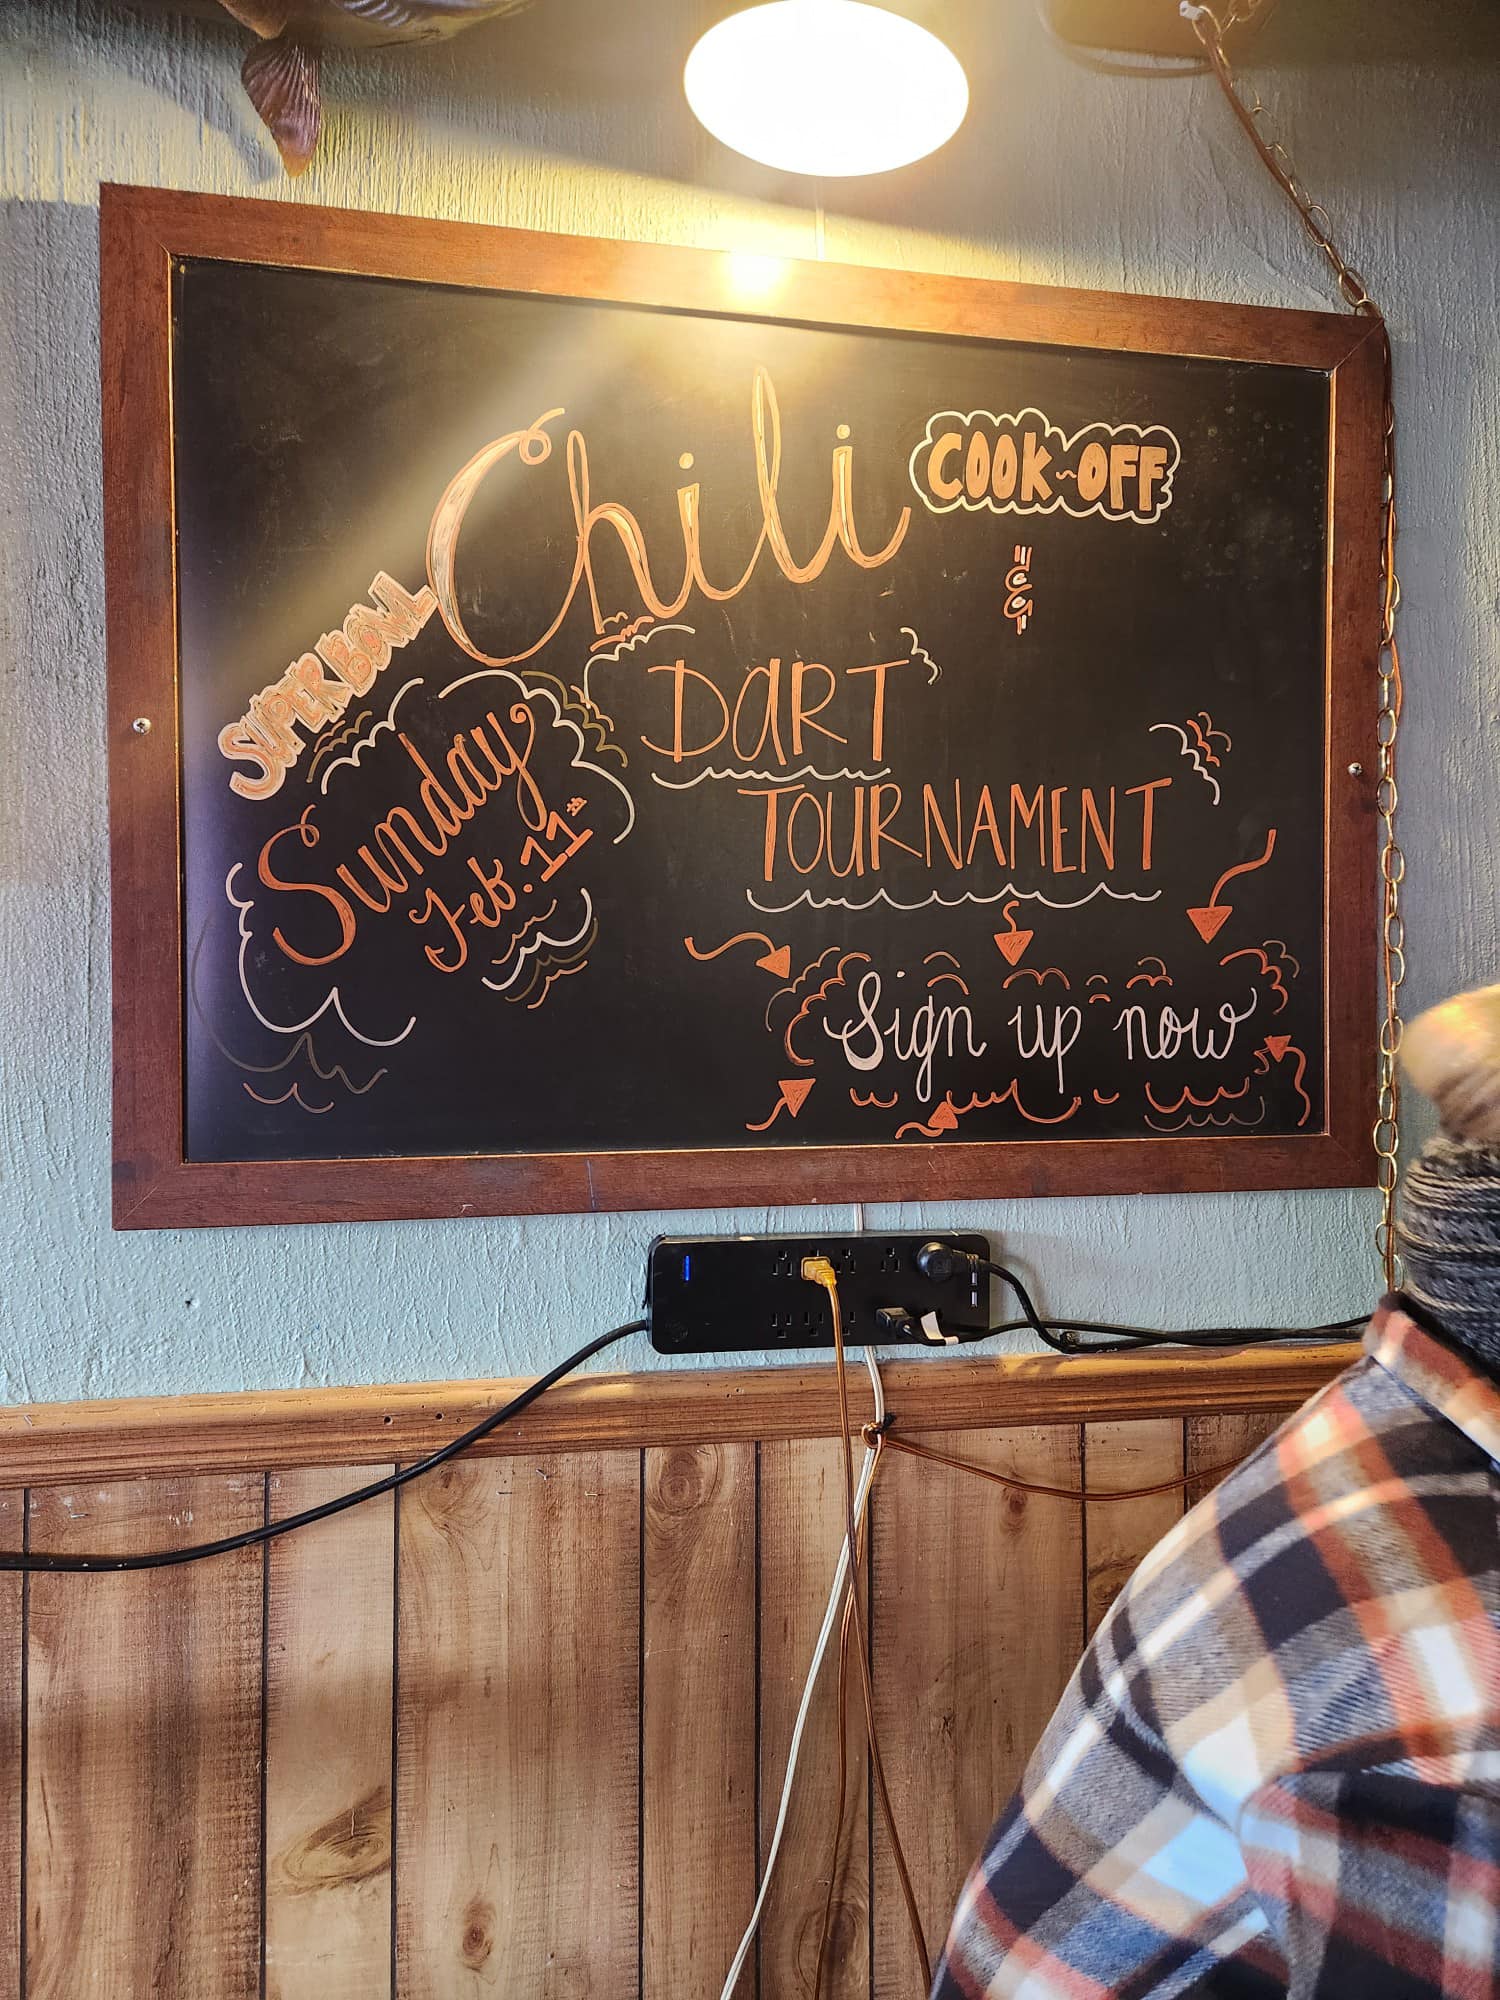 SUPER BOWL
Chili
COOK~OFF
&
DART
TOURNAMENT
Sunday
Feb. 11th
Sign up now